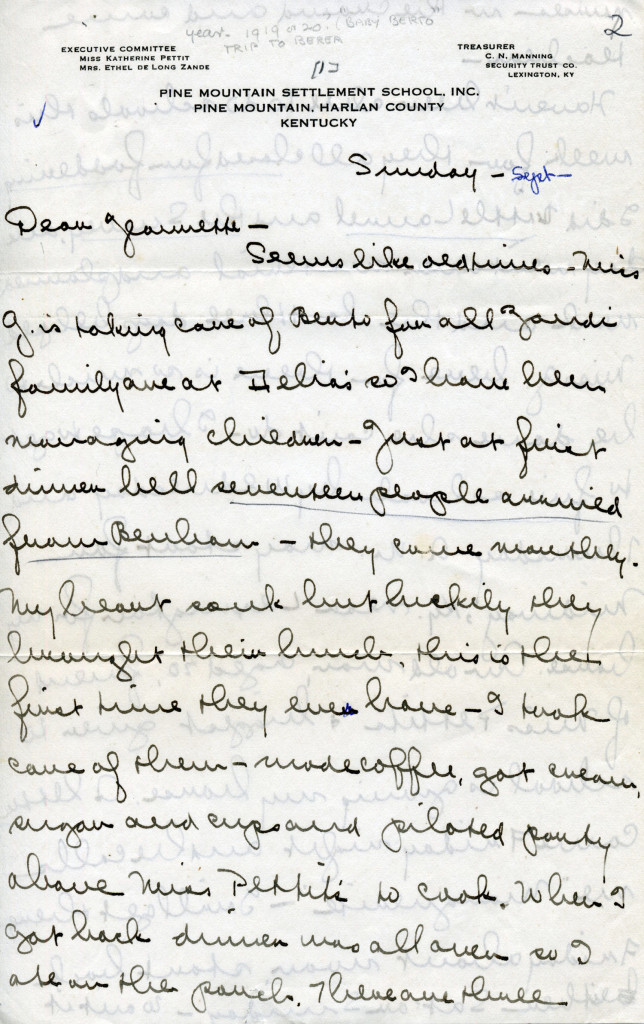 2
year - 1919 or 20, (BABY BERTO
TRIP TO BEREA
EXECUTIVE COMMITTEE
MISS KATHERINE PETTIT
MRS. ETHEL DE LONG ZANDE
TREASURER
C. N. MANNING
SECURITY TRUST CO.
LEXINGTON, KY
PINE MOUNTAIN SETTLEMENT SCHOOL, INC.
PINE MOUNTAIN, HARLAN COUNTY
KENTUCKY
Sunday - Sept -
Dear Jeannette -
Seems like old times - Miss
G. is taking care of Berto for all Zandi
family are at Delia's so I have been
managing children - Just at first
dinner bell seventeen people arrived
from Benham - they come monthly.
My heart sank but luckily they
brought their lunch, this is the
first time they ever have - I took
care of them - made coffee, got cream,
sugar and cups and piloted party
above Miss Pettit's to cook. When I
got back dinner was all over so I
ate on the porch. There are three